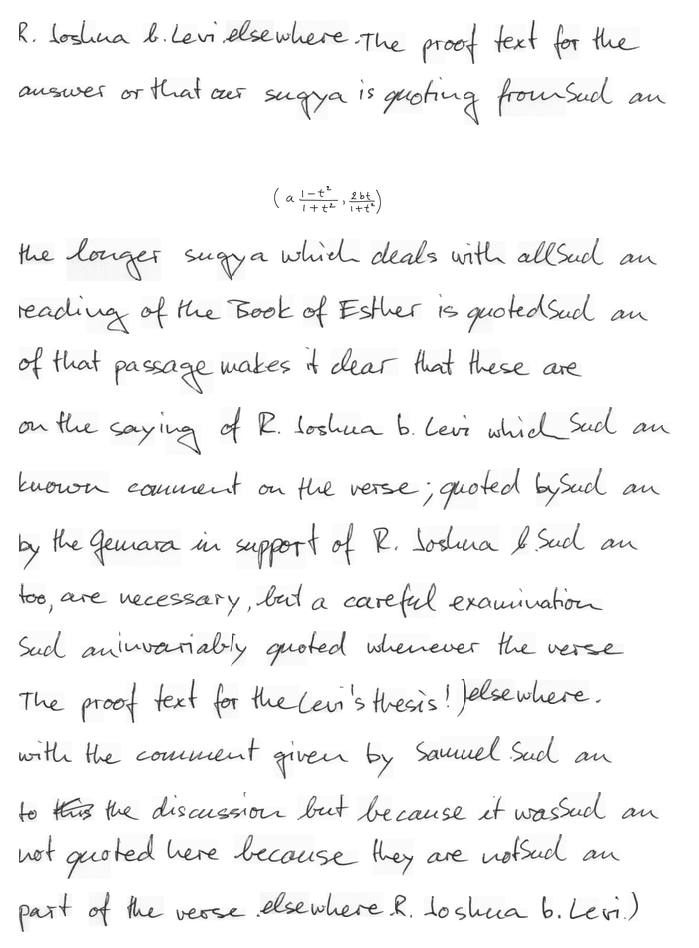 R. Joshua b. Levi.elsewhere.The proof text for the
answer or that our sugya is quoting from Sud an
(a \frac{1-t^2}{1+t^2}, \frac{2bt}{1+t^2})
the longer sugya which deals with all Sud an
reading of the Book of Esther is quoted Sud an
of that passage makes it clear that these are
on the saying of R. Joshua b. Levi which Sud an
known comment on the verse; quoted by Sud an
by the Gemara in support of R. Joshua b. Sud an
too, are necessary, but a careful examination
Sud an invariably quoted whenever the verse
The proof text for the Levi's thesis!) elsewhere.
with the comment given by Samuel Sud an
to this the discussion but because it was Sud an
not quoted here because they are not Sud an
part of the verse.elsewhere.R. Joshua b. Levi.)